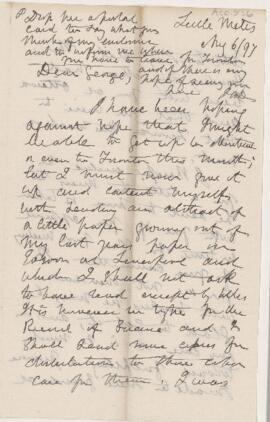 Drop me a postal
card to say what you
think of my enclosure
and to inform me when
you have to leave for Toronto
and if there is any
hope of seeing you
here
Little Metis
Aug 6/97
Dear George,
I have been hoping
against hope that I might
be able to get up to Montreal
or even to Toronto this month;
but I must now give it
up and content myself
with sending an abstract of
a little paper growing out of
my last years paper on
Eozoon at Liverpool and
which I shall not ask
to have read except by title
It is however in type for the
Record of Science and I
shall send some copies for
distribution to those who
care for them. I was